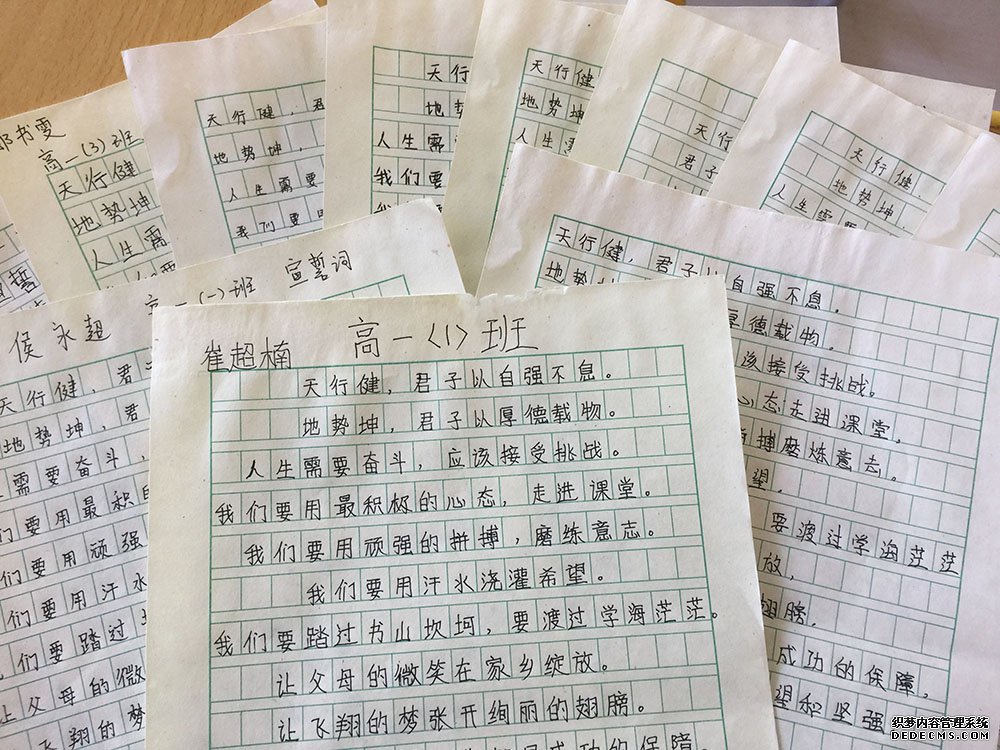 书雯
高一(3)班
天行健
地势坤
人生需
天行健，君
地势坤，
人生需要
我们要用
天行
地
人生需
我们要
天行健
地势坤
人生
天行
君子
天行健
地势坤
人生需
侯永超 高一(一)班 宣誓词
天行健，君
地势坤，君
需要奋斗，
们要用最积
们要用顽强
们要用汗水
们要踏过
让父母的微
飞翔的梦
崔超楠 高一<1>班
天行健，君子以自强不息。
地势坤，君子以厚德载物。
人生需要奋斗，应该接受挑战。
我们要用最积极的心态，走进课堂。
我们要用顽强的拼搏，磨练意志。
我们要用汗水浇灌希望。
我们要踏过书山坎坷，要渡过学海茫茫。
让父母的微笑在家乡绽放。
让飞翔的梦张开绚丽的翅膀。
成功的保障。
天行健，君子以自强不息。
地势
厚德载物。
该接受挑战。
心态走进课堂。
搏磨炼意志。
望。
要渡过学海茫茫
放，
翅膀。
成功的保障。
望和坚强
织梦内容管理系统
DEDECMS.COM